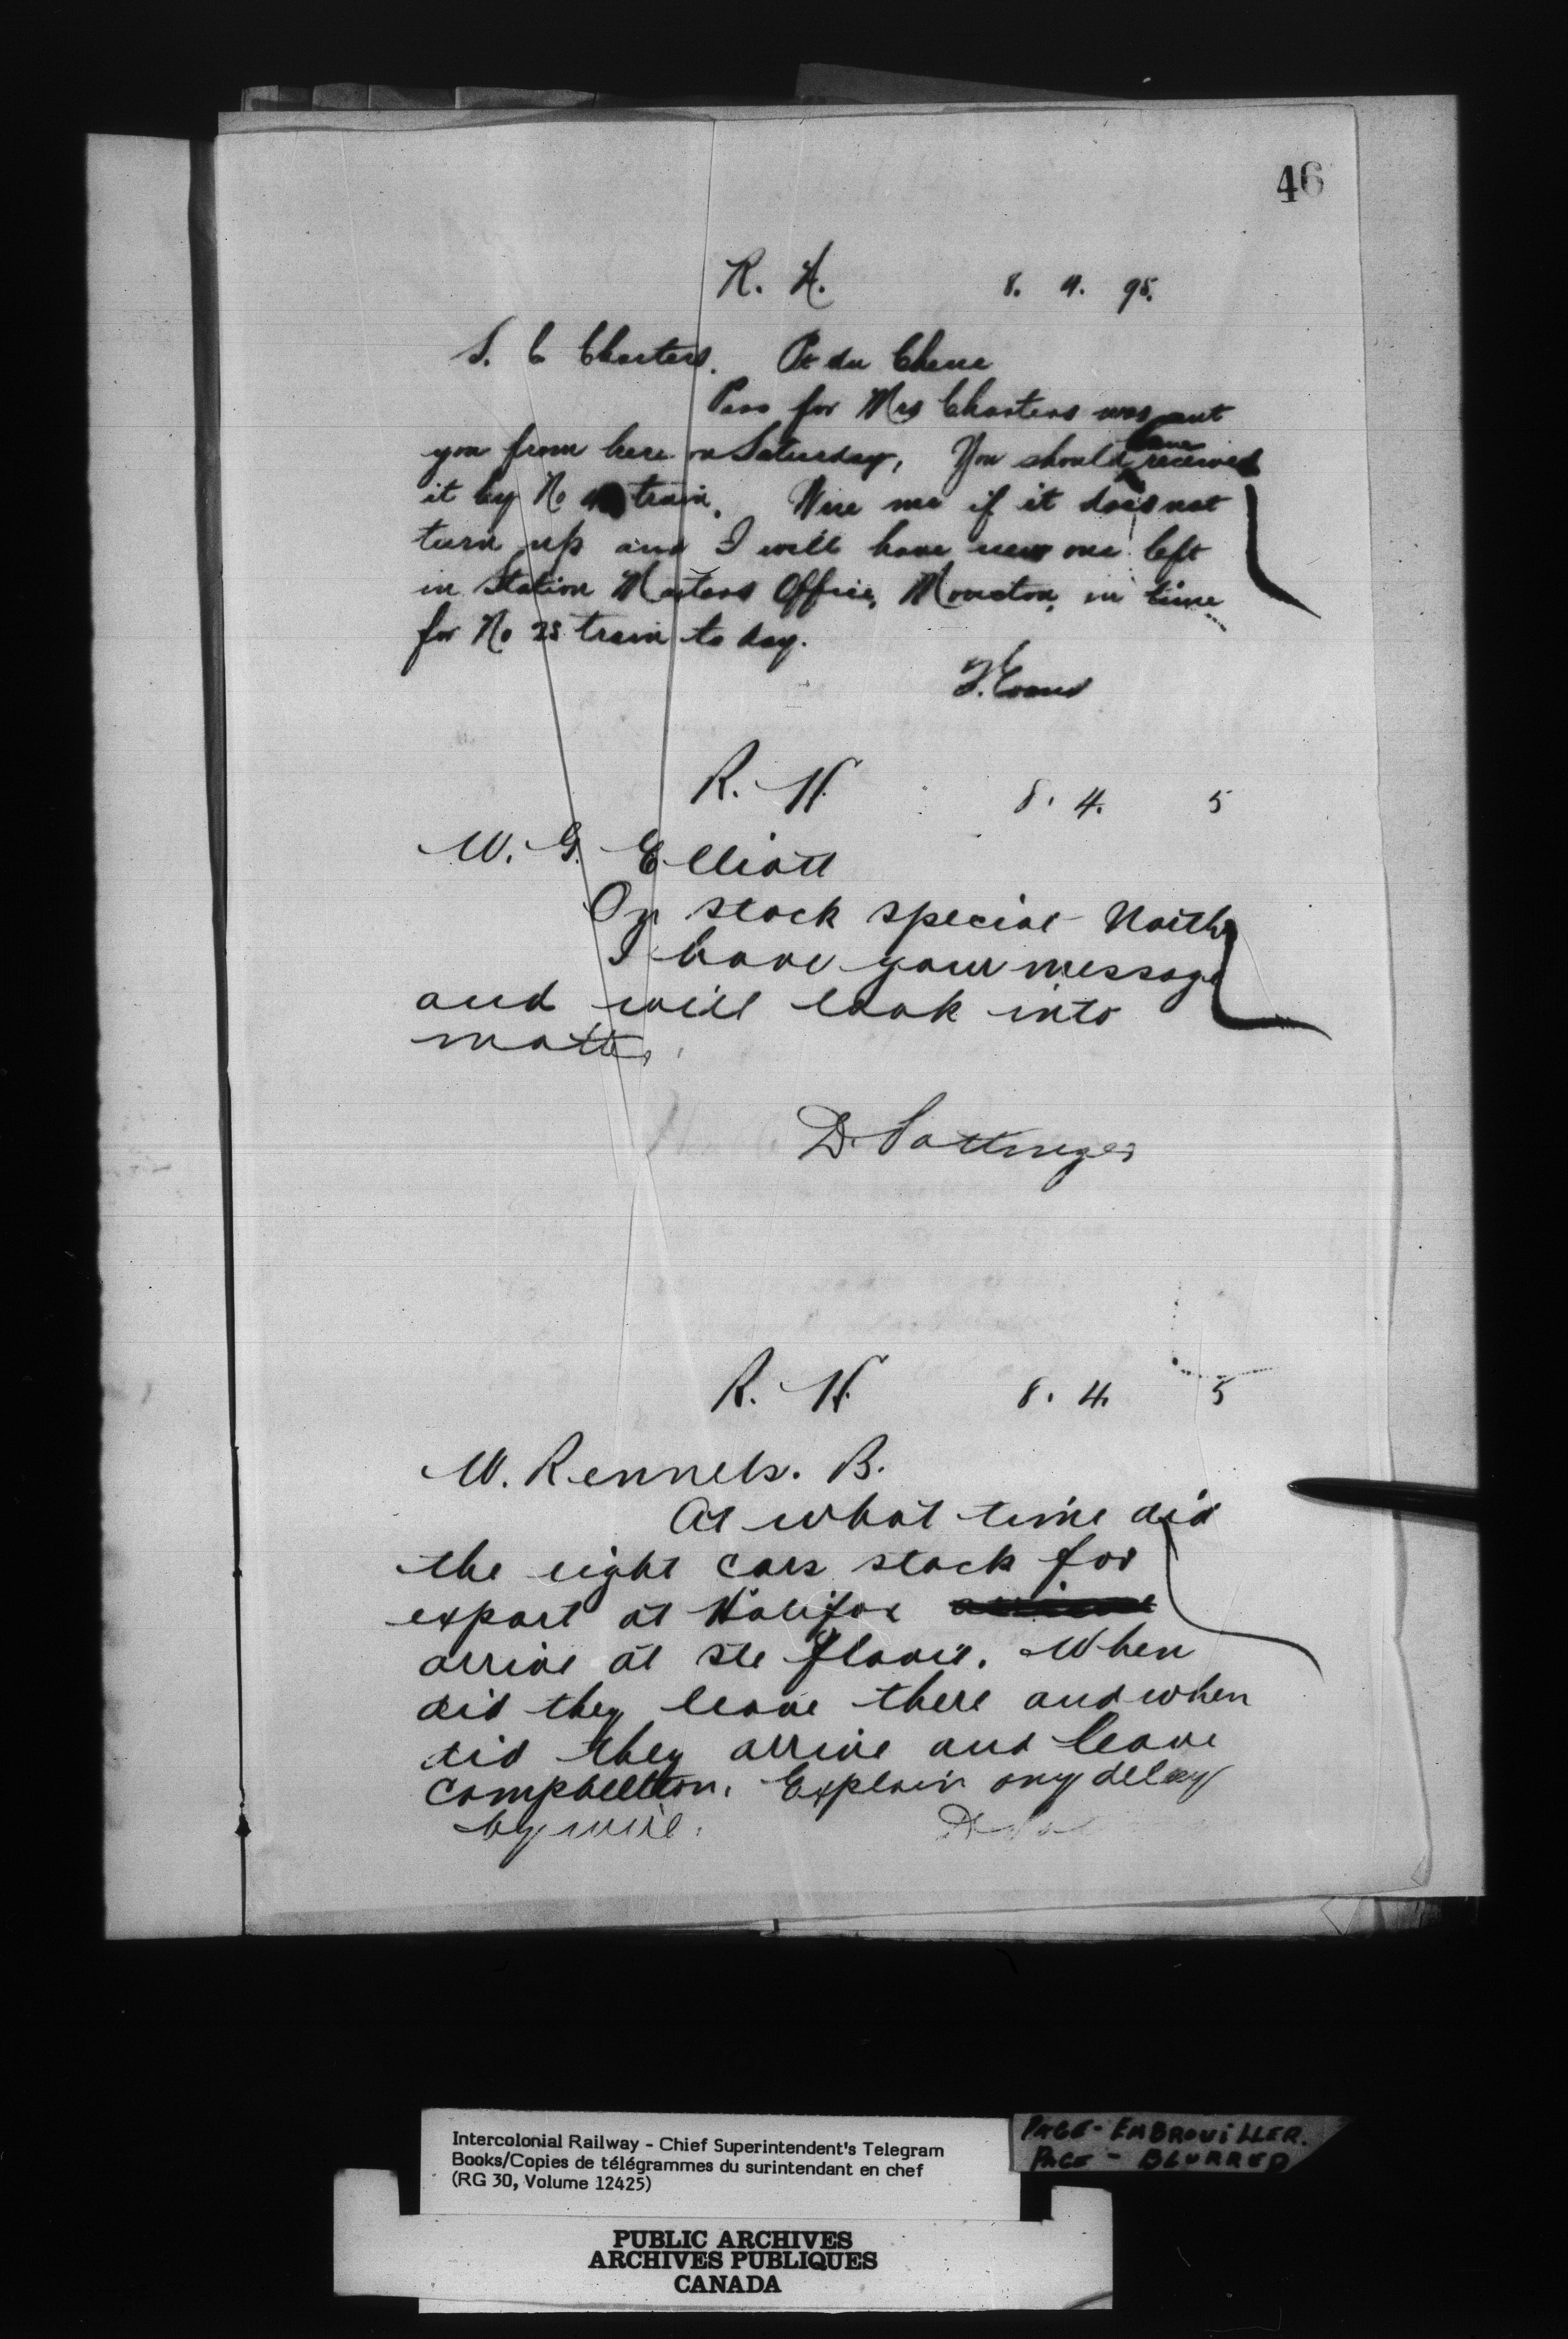 46
R. N. 8. 4. 95.
S. C Charters. Pt du Chene
Pass for Mrs Charters was sent
you from here on Saturday, You should have received
it by No train. Wire me if it does not
turn up and I will have new one left
in Station Masters Office, Moncton, in time
for No 25 train to day.
T. Evans
R. N. 8. 4. 5
W. G. Elliott
On stock special North
I have your message
and will look into
matter.
D. Pottinger
R. N. 8. 4. 5
W. Rennels. B.
At what time did
the eight cars stock for
export at Halifax
arrive at Ste Flavie. When
did they leave there and when
did they arrive and leave
Campbellton. Explain any delay
by wire.
Intercolonial Railway - Chief Superintendent's Telegram
Books/Copies de télégrammes du surintendant en chef
(RG 30, Volume 12425)
PAGE - EMBROUILLER.
PAGE - BLURRED
PUBLIC ARCHIVES
ARCHIVES PUBLIQUES
CANADA